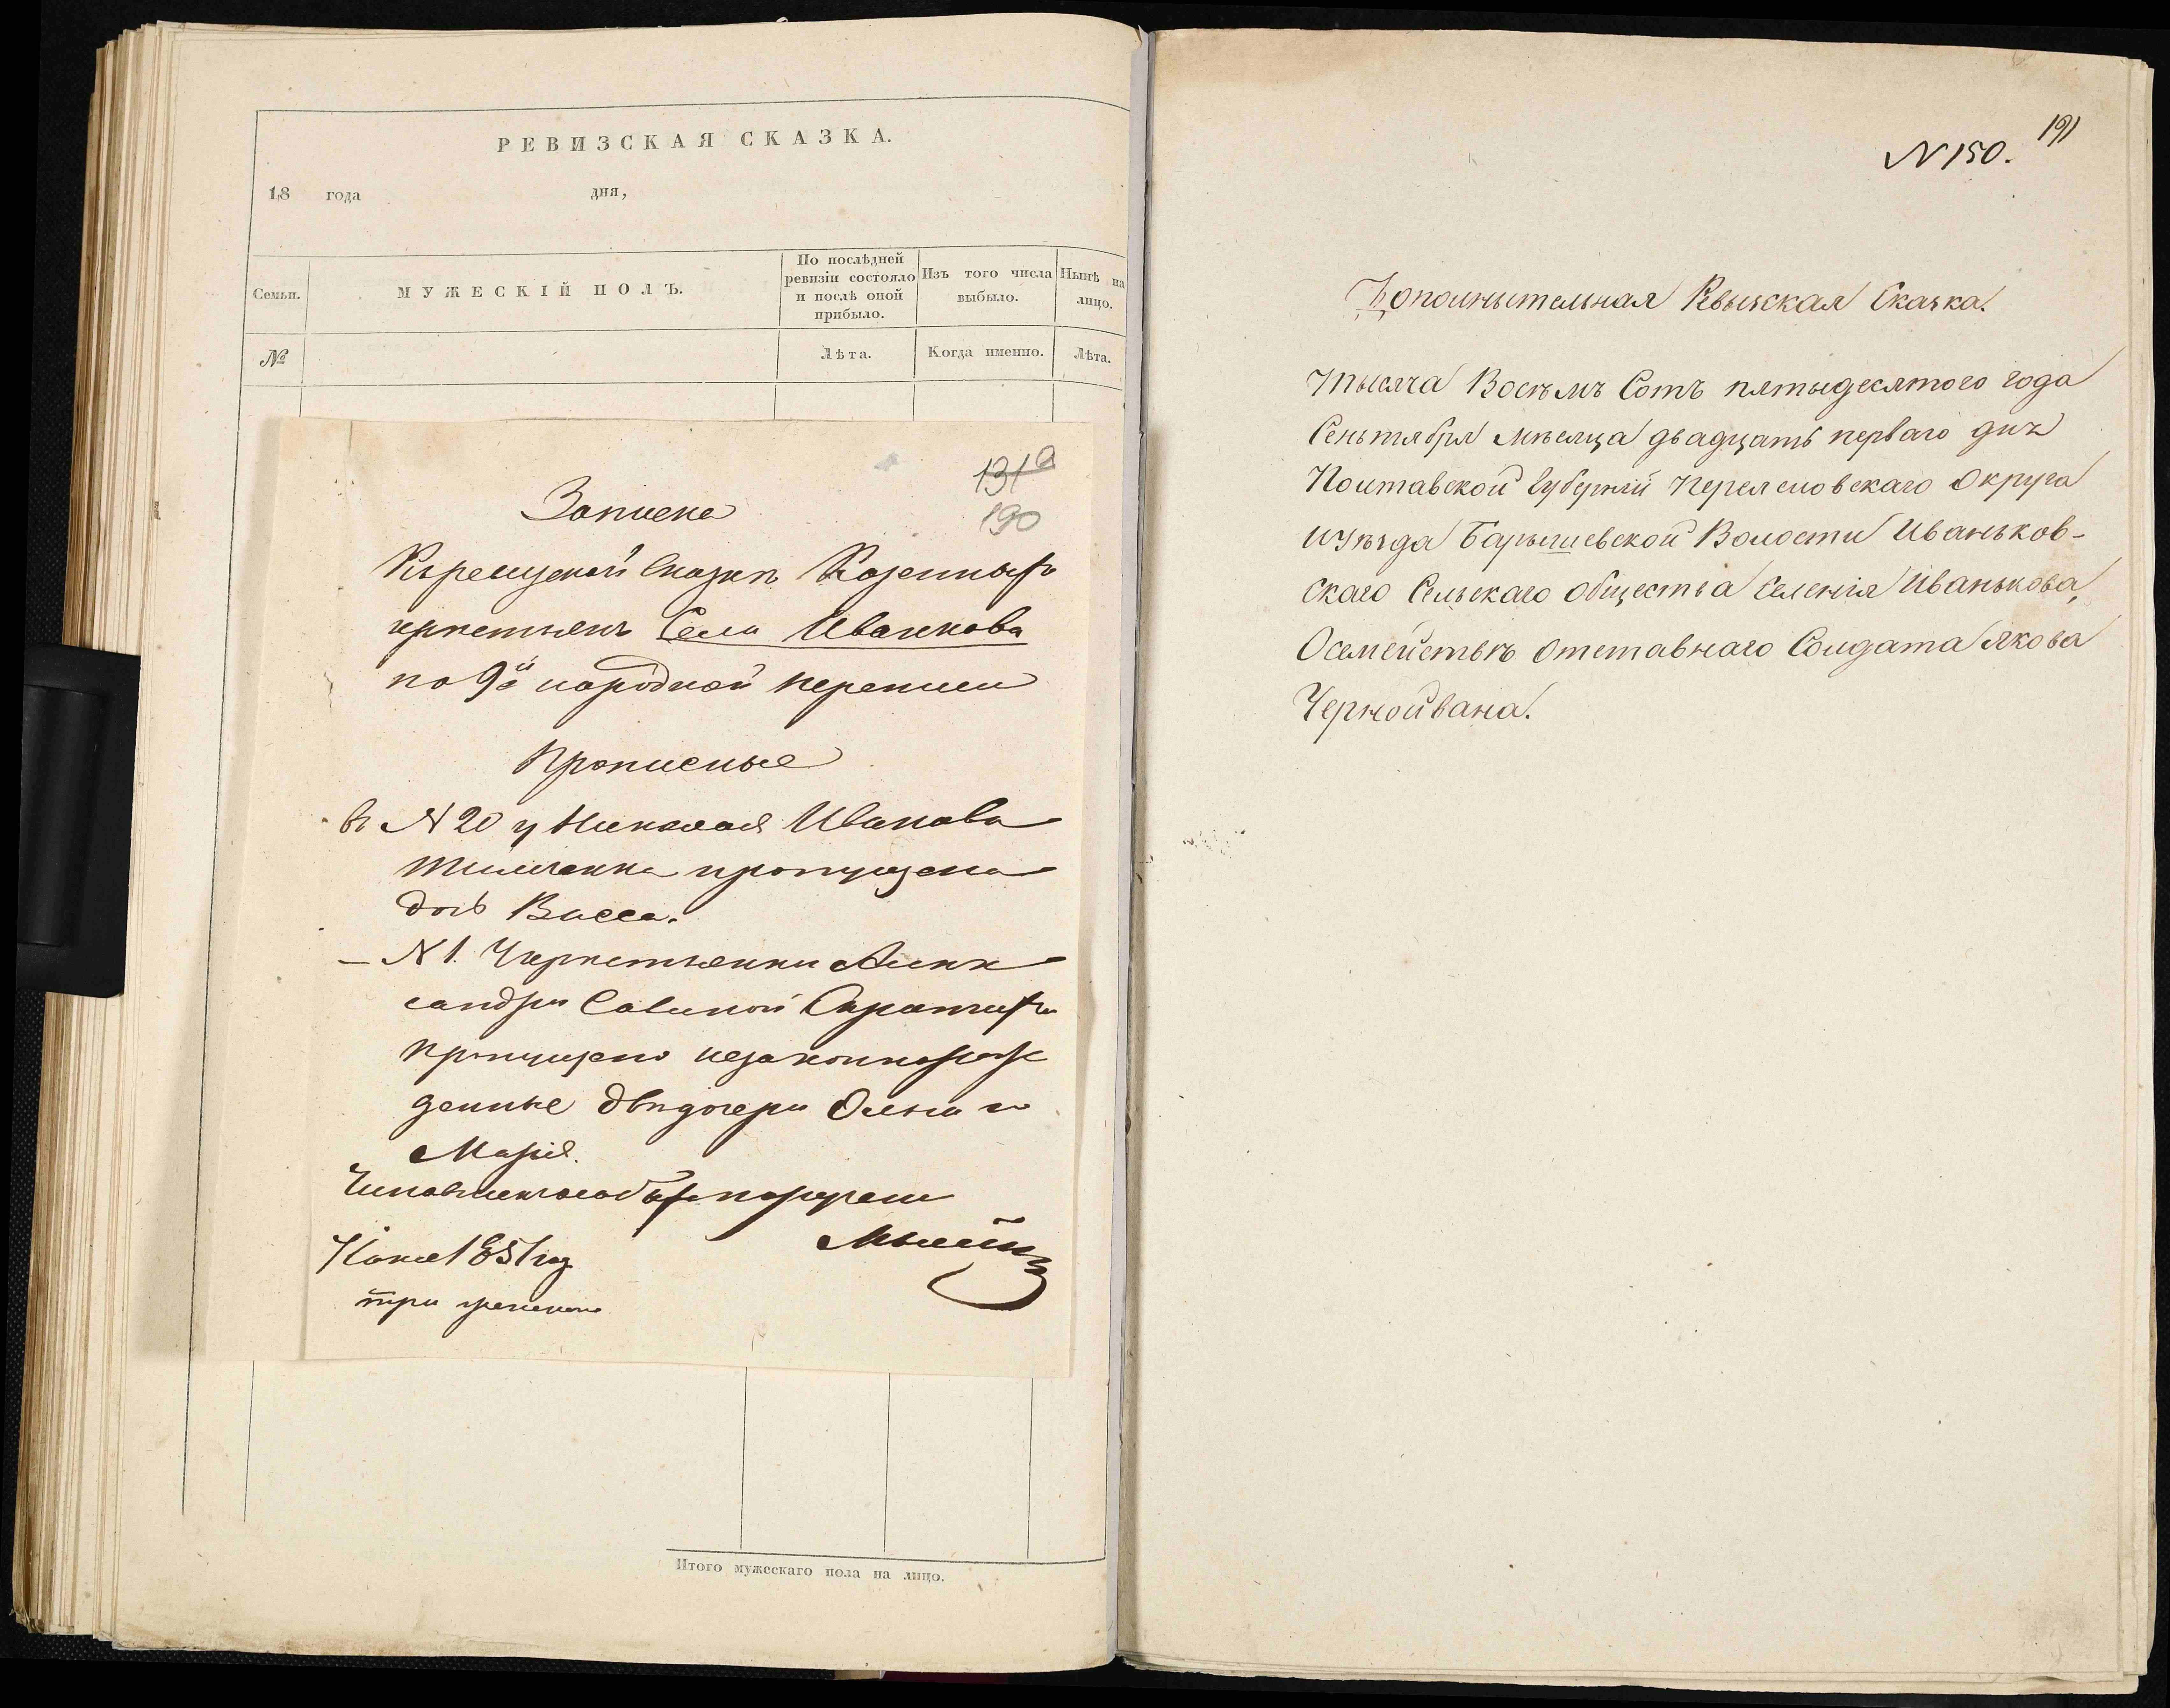 РЕВИЗСКАЯ СКАЗКА.
18 года дня,
Семьи.
МУЖЕСКІЙ ПОЛЪ.
По послѣдней ревизіи состояло и послѣ оной прибыло.
Изъ того числа выбыло.
Нынѣ на лицо.
№
Лѣта.
Когда именно.
Лѣта.
131а
190
Записка
Къ ревизской Сказкѣ Козенныхъ
крестьянъ Села Иванкова
по 9й народной переписи
Прописные
въ N 20 у Николая Иванова
пропущена
дочь Васса.
– N 1. У крестьянки Алек
сандры Савиной
пропущено незаконнорож
денные двѣ дочери Ольга и
Марія.
1851 год
Итого мужескаго пола на лицо.
191
N 150.
Дополнытельная Ревызская Сказка.
Тысяча Восѣмъ Сотъ пятыдесятого года
Сеньтября мѣсяца двадцать перваго дня
Полтавской Губерніи Переясловскаго Округа
иуѣзда Барышевской Волости Иваньков-
скаго Сельскаго Общества Селенія Иванькова,
Осемействѣ Отставнаго Солдата Якова
Чернойвана.